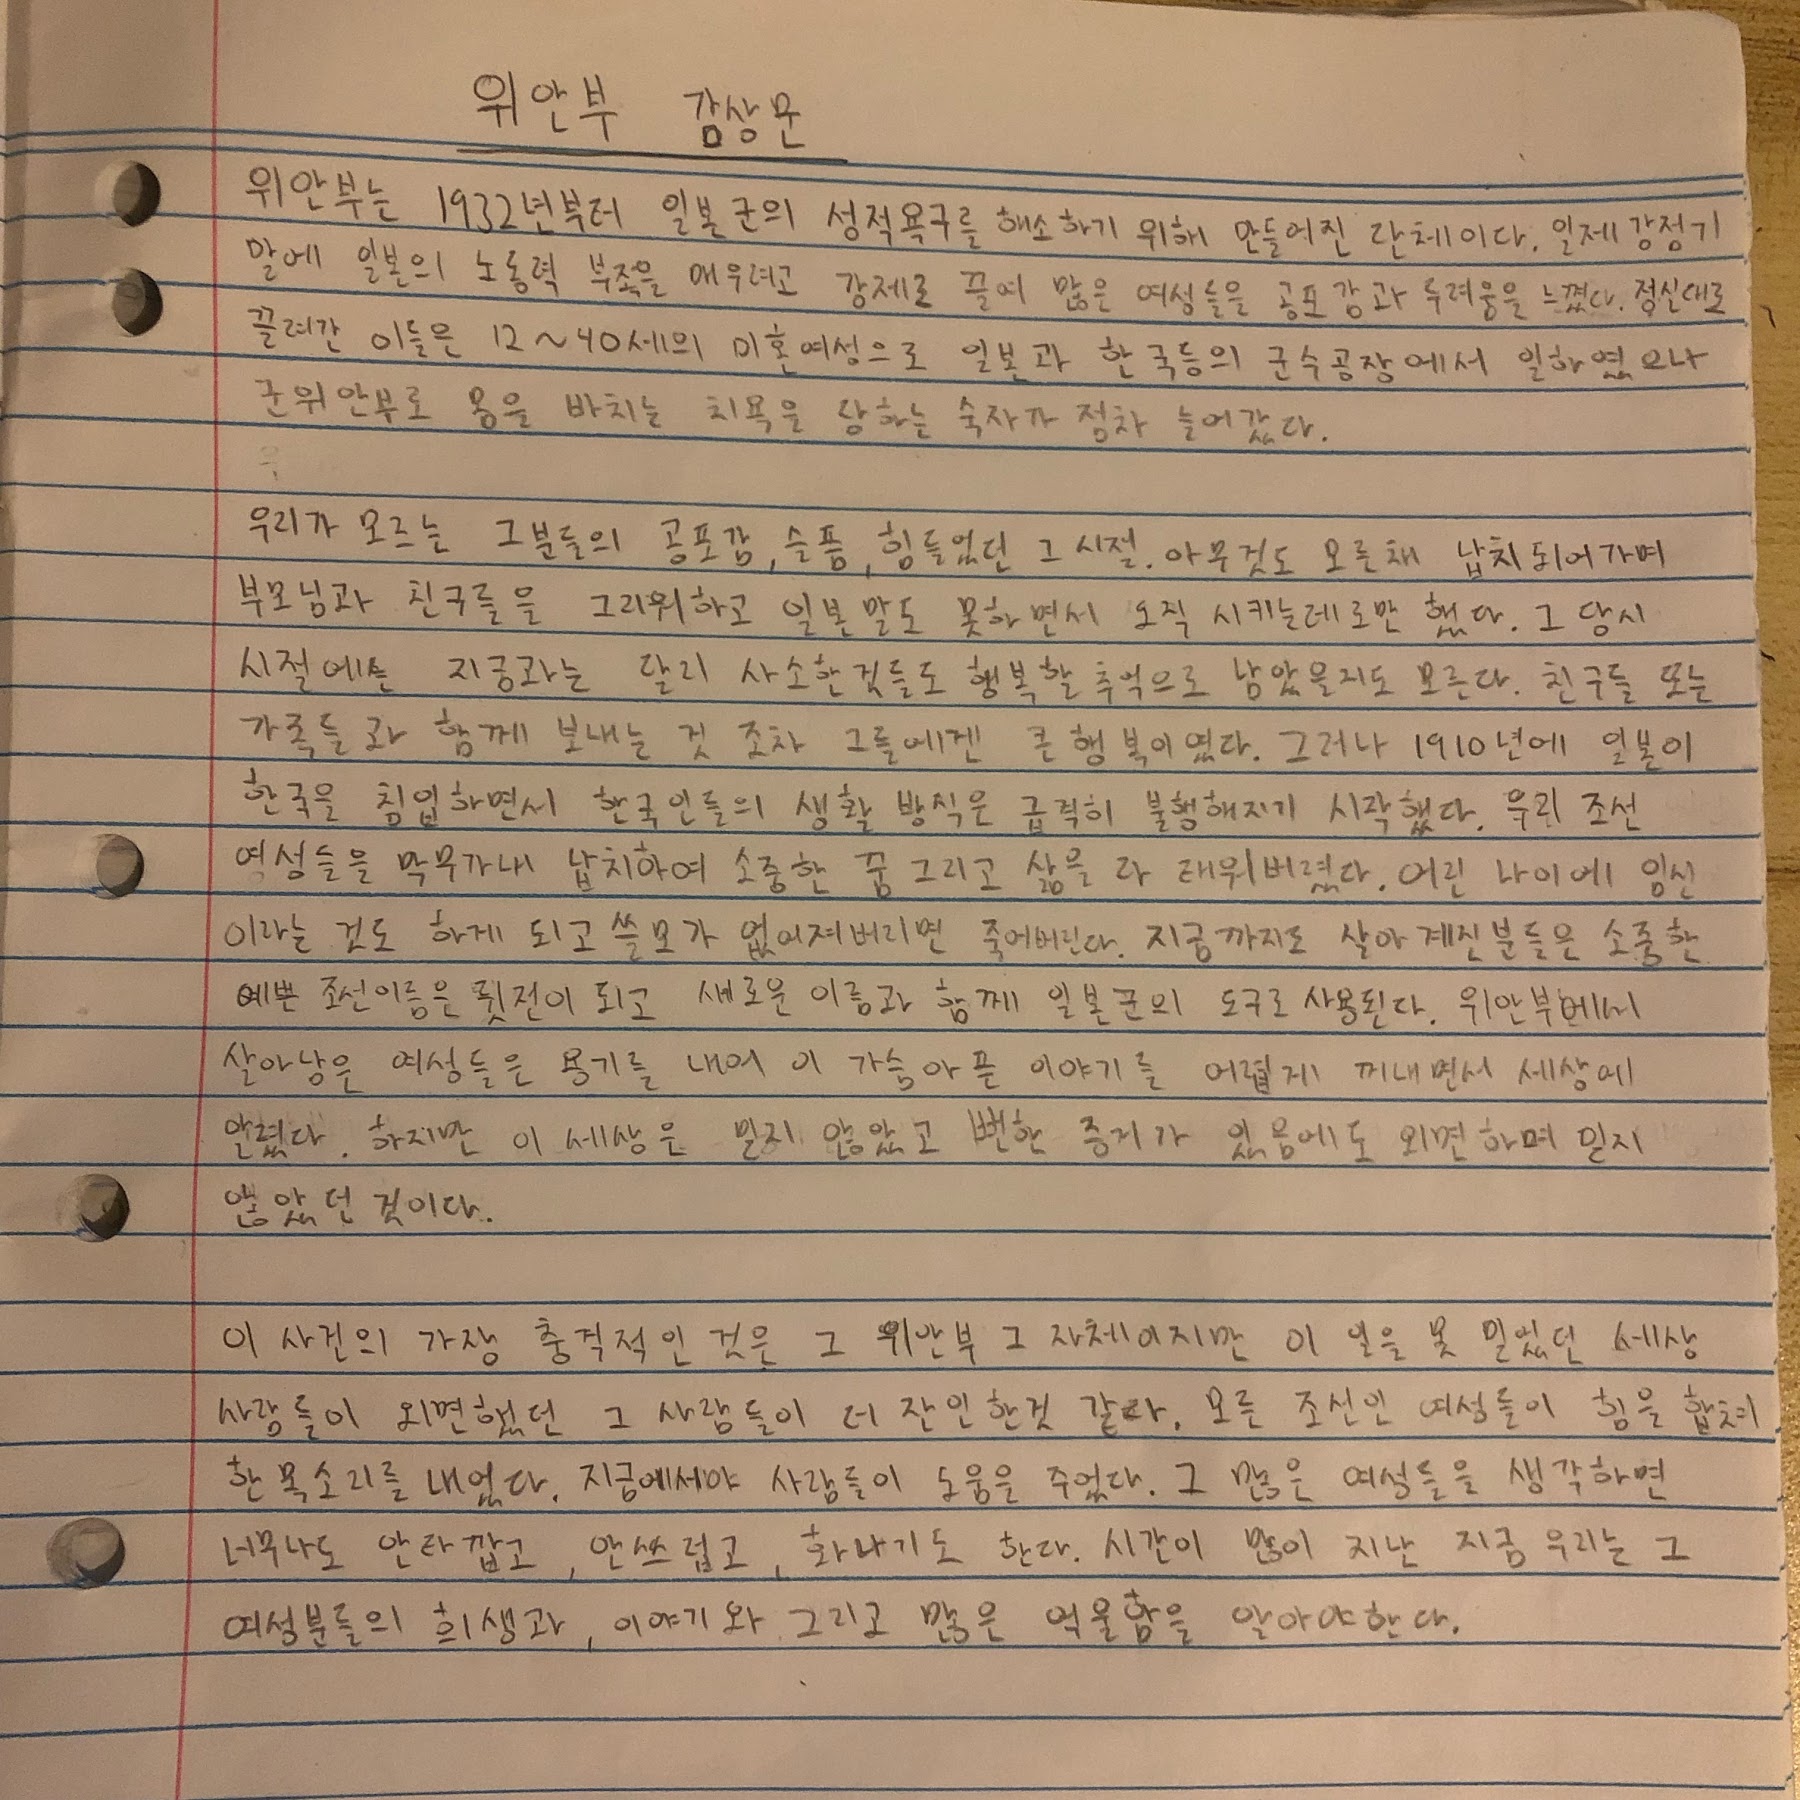 위안부 감상문
위안부는 1932년부터 일본군의 성적욕구를 해소하기 위해 만들어진 단체이다. 일제강점기
말에 일본의 노동력 부족을 매우려고 강제로 끌여 많은 여성들을 공포감과 두려움을 느꼈다. 정신대로
끌려간 이들은 12~40세의 미혼여성으로 일본과 한국등의 군수공장에서 일하였으나
군위안부로 몸을 바치는 치욕을 당하는 숙자가 점차 늘어갔다.
우리가 모르는 그분들의 공포감, 슬픔, 힘들었던 그 시절. 아무것도 모른채 납치되어가며
부모님과 친구들을 그리워하고 일본말도 못하면서 오직 시키는데로만 했다. 그 당시
시절에는 지금과는 달리 사소한것들도 행복할 추억으로 남았을지도 모른다. 친구들 또는
가족들과 함께 보내는 것 조차 그들에겐 큰 행복이였다. 그러나 1910년에 일본이
한국을 침입하면서 한국인들의 생활 방식은 급격히 불행해지기 시작했다. 우리 조선
여성들을 막무가내 납치하여 소중한 꿈 그리고 삶을 다 태워버렸다. 어린 나이에 임신
이라는 것도 하게 되고 쓸모가 없어져버리면 죽여버린다. 지금까지도 살아계신분들은 소중한
예쁜 조선이름은 뒷전이 되고 새로운 이름과 함께 일본군의 도구로 사용된다. 위안부에서
살아남은 여성들은 용기를 내어 이 가슴아픈 이야기를 어렵게 꺼내면서 세상에
알렸다. 하지만 이 세상은 믿지 않았고 뻔한 증거가 있음에도 외면하며 믿지
않았던 것이다.
이 사건의 가장 충격적인 것은 그 위안부 그 자체이지만 이 일을 못 믿었던 세상
사람들이 외면했던 그 사람들이 더 잔인한것 같다. 모든 조선인 여성들이 힘을 합쳐
한 목소리를 내었다. 지금에서야 사람들이 도움을 주었다. 그 많은 여성들을 생각하면
너무나도 안타깝고, 안쓰럽고, 화나기도 한다. 시간이 많이 지난 지금 우리는 그
여성분들의 희생과, 이야기와 그리고 많은 억울함을 알아야한다.